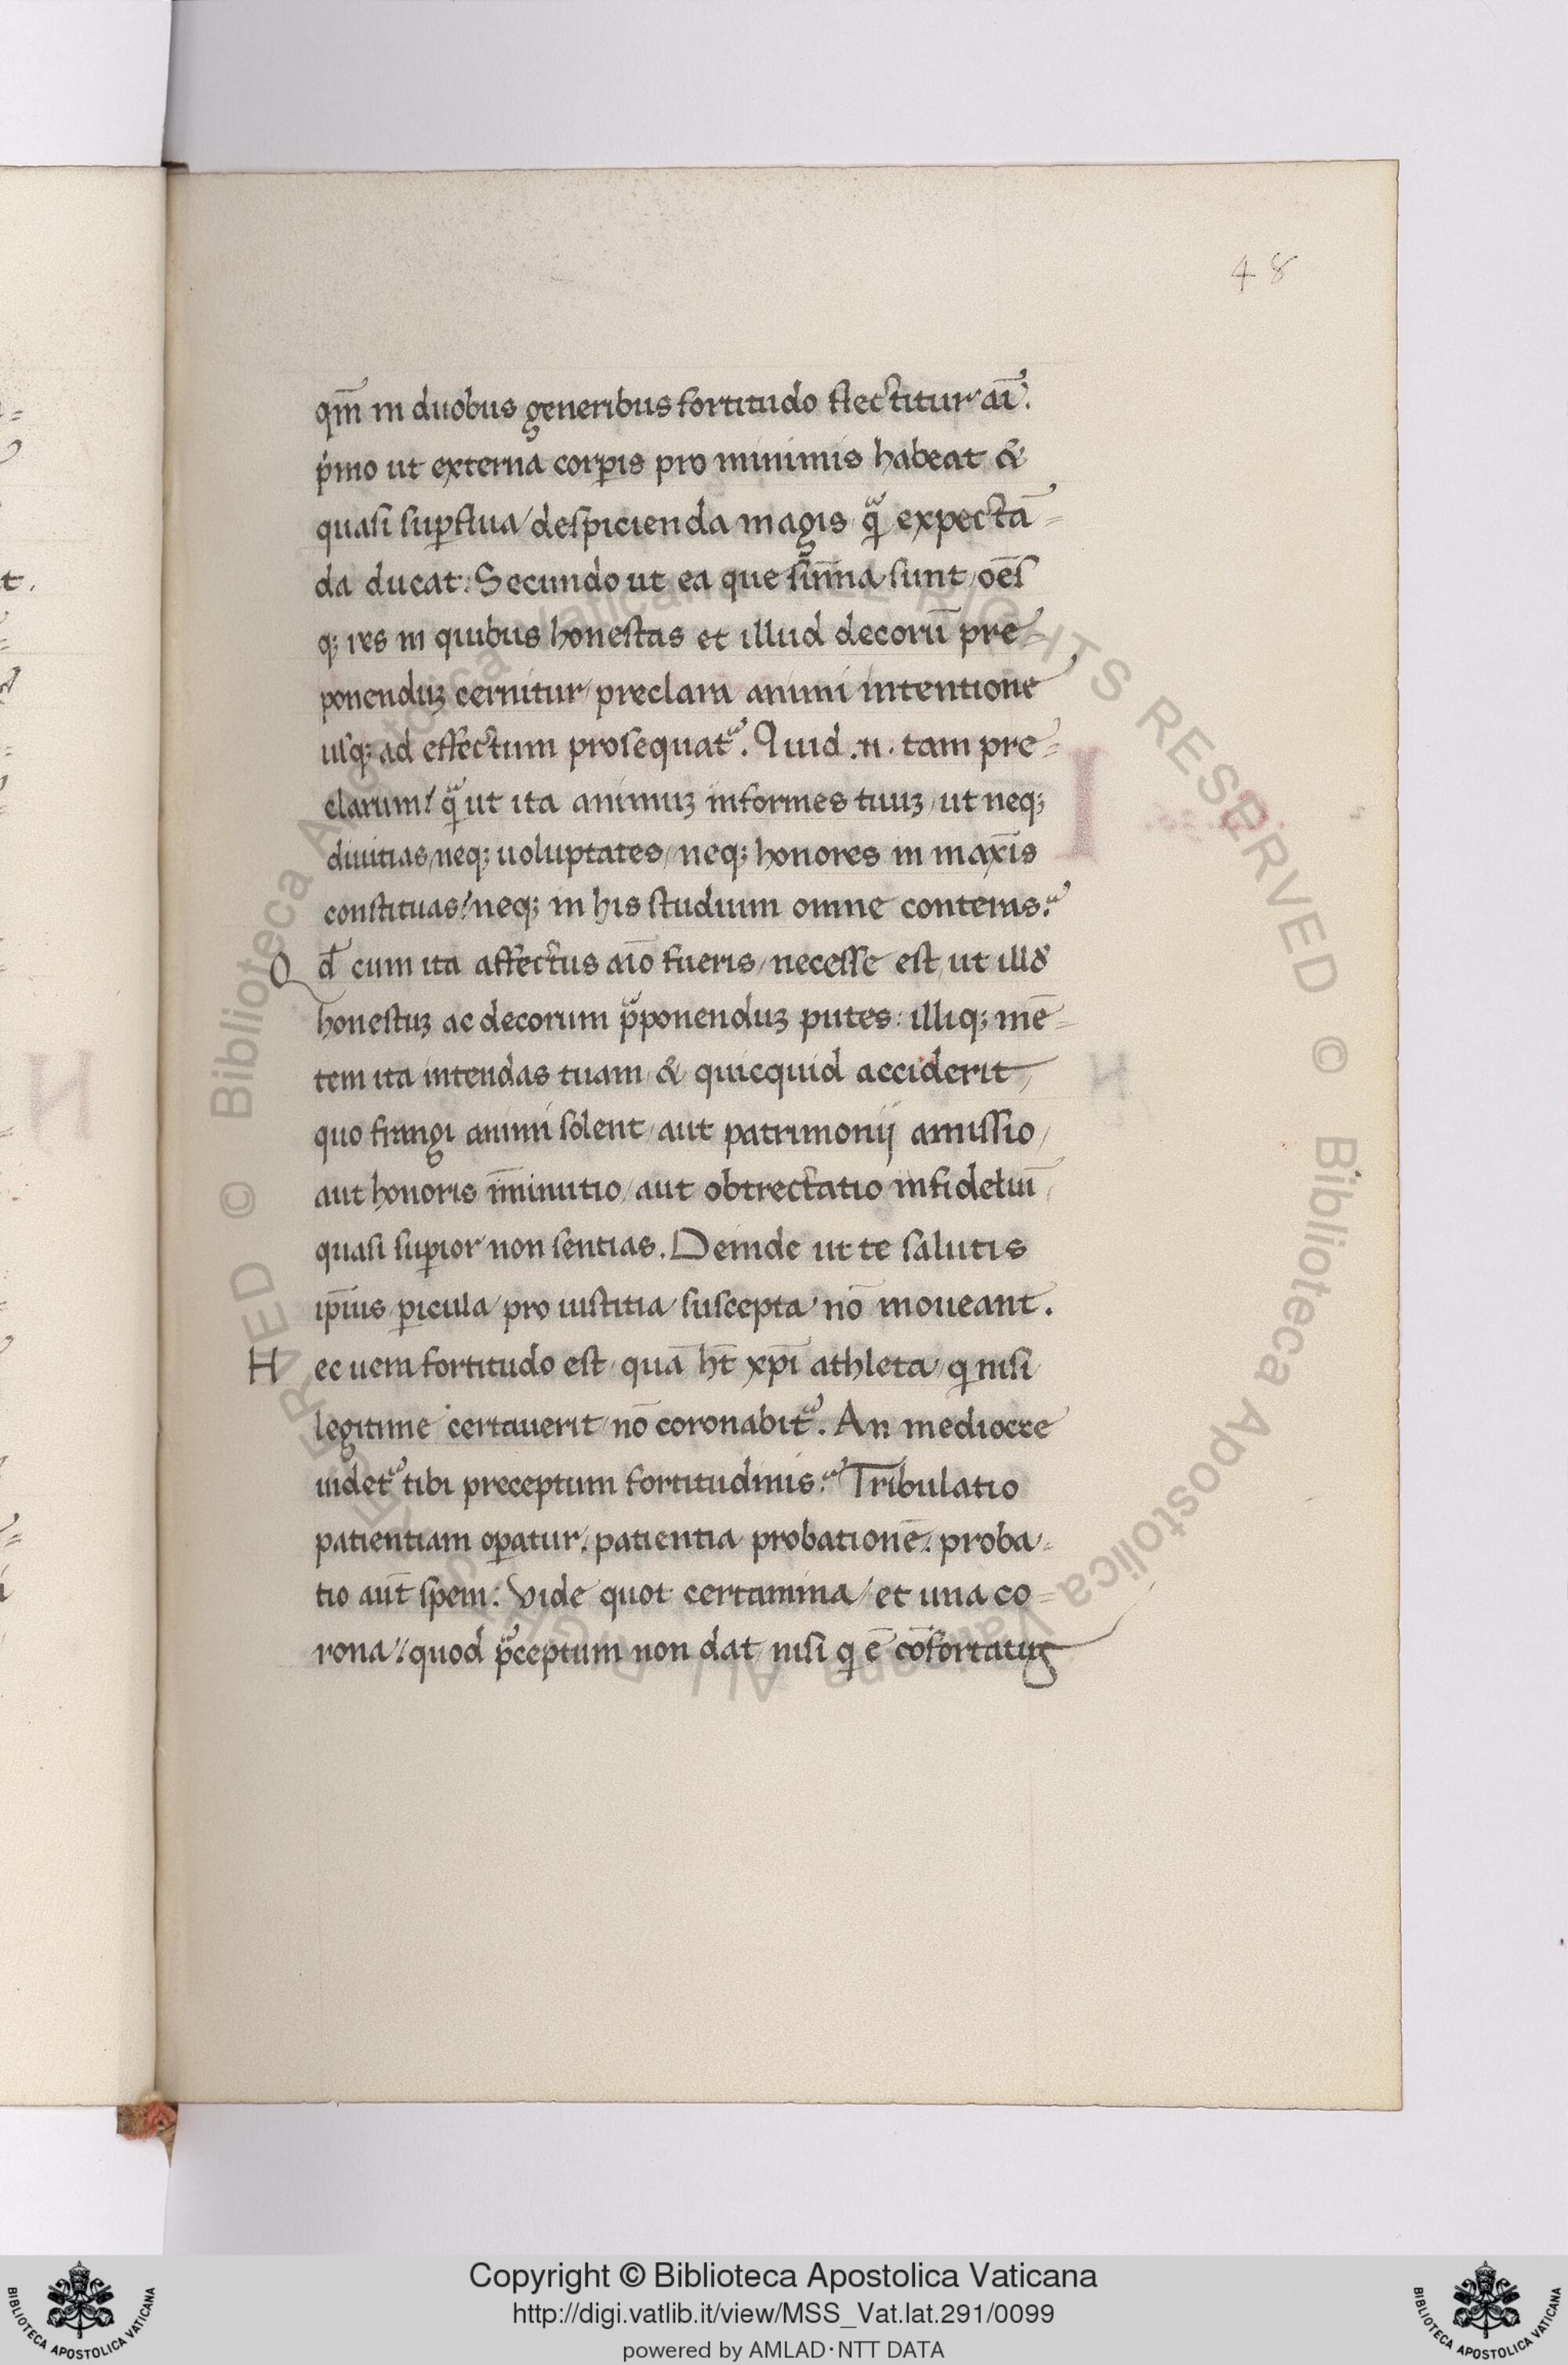 48
qm̅ in duobus generibus fortitudo flectitur ai̅.
p̍mo ut externa corꝑis pro minimis habeat &
quasi suꝑflua / despicienda magis qᷓ expecta̅=
da ducat: Secundo ut ea que su̅ma sunt / oe̅s
q; res in quibus honestas et illud decoru̅ pre=
ponenduꝫ cernitur / preclara animi intentione
usq; ad effectum prosequat᷑. Quid .n. tam pre=
clarum / qᷓ ut ita animuꝫ informes tuuꝫ / ut neq;
diuitias / neq; uoluptates / neq; honores in maxi̅s
constituas / neq; in his studium omne conteras?
Qd̅ cum ita affectus aio̅ fueris / necesse est / ut illd̅
honestuꝫ ac decorum pᷓponenduꝫ putes: illiq; me̅=
tem ita intendas tuam / & quicquid acciderit /
quo frangi animi solent / aut patrimonij amissio /
aut honoris im̅inutio / aut obtrectatio infideliu̅ /
quasi suꝑior non sentias. Deinde ut te salutis
ip̅ius ꝑicula / pro iustitia suscepta no̅ moueant.
Hec uera fortitudo est / qua̅ ht̅ xp̅i athleta / q nisi
legitime certauerit / no̅ coronabit᷑. An mediocre
uidet᷑ tibi preceptum fortitudinis? Tribulatio
patientiam oꝑatur / patientia probatione̅: proba=
tio aut̅ spem: Vide quot certamina / et una co=
rona / quod pᷓceptum non dat / nisi q e̅ co̅fortatus
Copyright © Biblioteca Apostolica Vaticana
http://digi.vatlib.it/view/MSS_Vat.lat.291/0099
powered by AMLAD·NTT DATA